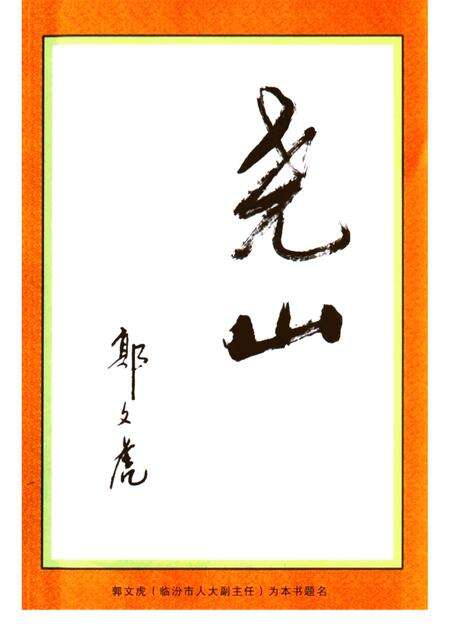 尧山
郭文虎
郭文虎（临汾市人大副主任）为本书题名